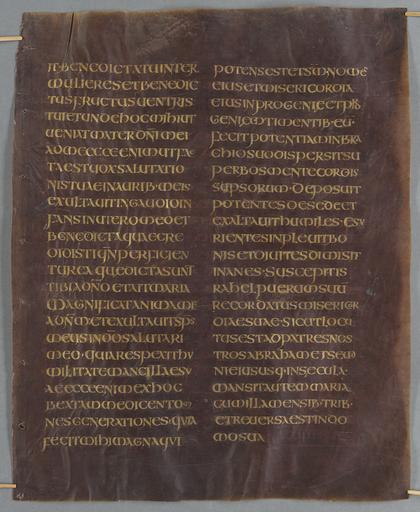 IT BENEDICTA TU INTER
MULIERES ET BENEDIC
TUS FRUCTUS UENTRIS
TUI ET UNDE HOC MIHI UT
UENIAT MATER DNI MEI
AD ME ECCE ENIM UT FAC
TA EST UOX SALUTATIO
NIS TUAE IN AURIB· MEIS
EXULTAUIT IN GAUDIO IN
FANS IN UTERO MEO ET
BENEDICTA QUAE CRE
DIDISTI QNM PERFICIEN
TUR EA QUE DICTA SUNT
TIBI A DNO ET AIT MARIA
MAGNIFICAT ANIMA ME
A DNM ET EXULTAUIT SPS
MEUS IN DO SALUTARI
MEO· QUIA RESPEXIT HU
MILITATEM ANCILLAE SU
AE ECCE ENIM EX HOC
BEATAM ME DICENT OM
NES GENERATIONES· QUIA
FECIT MIHI MAGNA QUI
POTENS EST ET SCM NOME
EIUS ET MISERICORDIA
EIUS IN PROGENIE ET PRO
GENIE TIMENTIB· EU·
FECIT POTENTIAM IN BRA
CHIO SUO DISPERSIT SU
PERBOS MENTE CORDIS
SUI IPSORUM· DEPOSUIT
POTENTES DE SEDE ET
EXALTAUIT HUMILES· ESU
RIENTES INPLEUIT BO
NIS ET DIUITES DIMISIT
INANES· SUSCEPIT IS
RAHEL PUERUM SUU
RECORDATUS MISERICOR
DIAE SUAE· SICUT LOCU
TUS EST AD PATRES NOS
TROS ABRAHAM ET SEMI
NI EIUS USQ· IN SECULA·
MANSIT AUTEM MARIA
CUM ILLA MENSIB· TRIB·
ET REUERSA EST IN DO
MO SUA